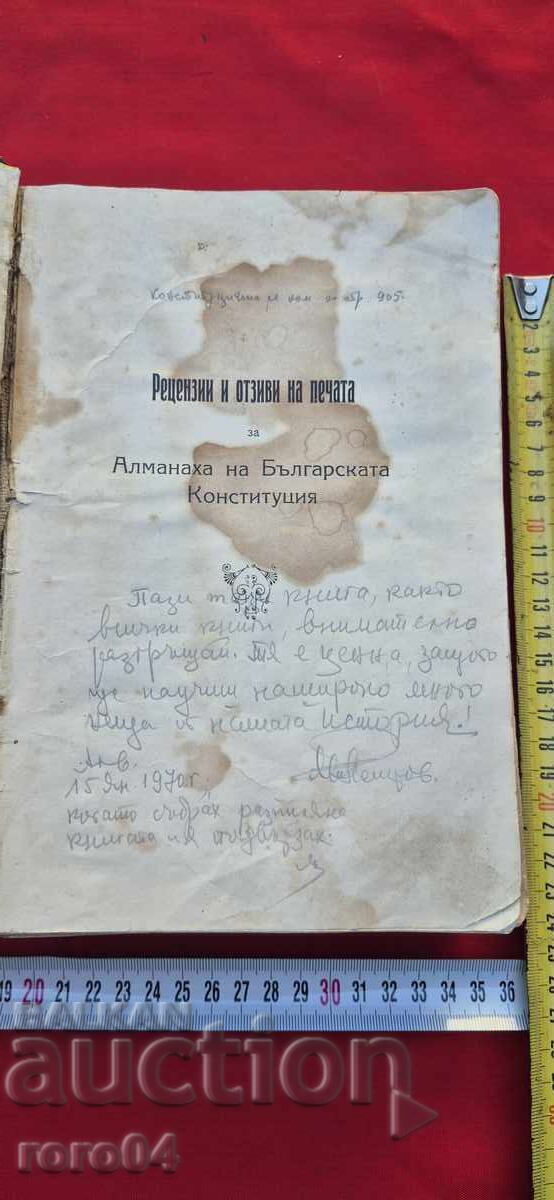 Рецензии и отзиви на печата
за
Алманаха на Българската
Конституция
Пази тази книга, както
всички книги, внимателно
разгръщай. Тя е ценна, защото
ще научиш нашироко много
неща от нашата история!
15 Ян. 1970 г.
когато събрах
книгата и я подвързах.
19 20 21 22 23 24 25 26 27 28 29 30 31 32 33 34 35 36
2 3 4 5 6 7 8 9 10 11 12 13 14 15 16 17 18 19 20 21 22 23 24 25 26 27 28 29 30
BALKAN
auction
roro04